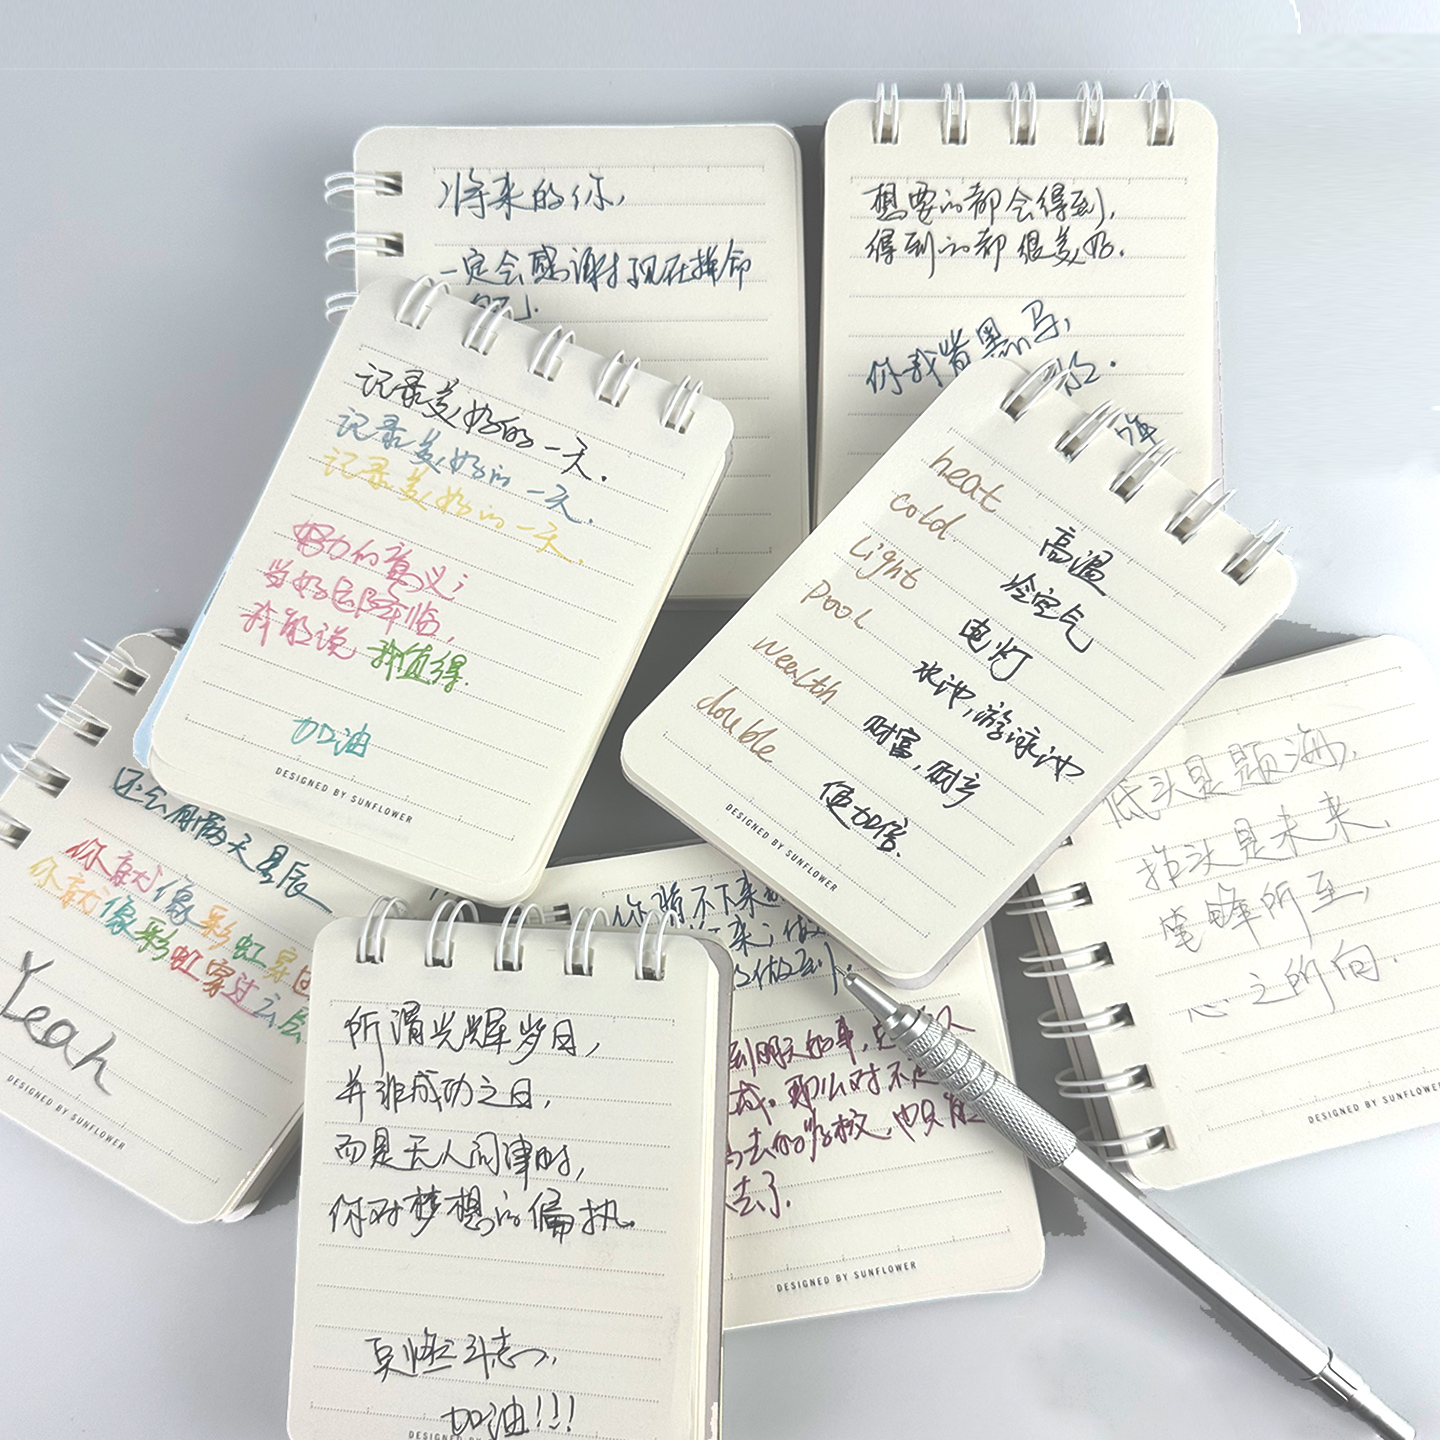 将来的你,
一定会感谢现在拼命
想要的都会得到,
得到的都很美好.
你我皆黑马,
记录美好的一天.
记录美好的一天.
记录美好的一天.
努力的意义;
当好运降临,
我能说 我值得.
加油
DESIGNED BY SUNFLOWER
heat
高温
cold
冷空气
Light
电灯
pool
水池,游泳池
wealth
财富,财产
double
使加倍.
DESIGNED BY SUNFLOWER
还会有满天星辰
你就像彩虹穿
你就像彩虹穿过云层
Yeah
DESIGNED BY SUNFLOWER
低头是题海,
抬头是未来,
笔锋所至,
心之所向.
DESIGNED BY SUNFLOWER
你将不下来
来;做
做到.
到明天的事,
成。那么对不起
去的学校,也只能
去了.
DESIGNED BY SUNFLOWER
所谓光辉岁月,
并非成功之日,
而是无人问津时,
你对梦想的偏执.
要燃起斗志,
加油!!!
DESIGNED